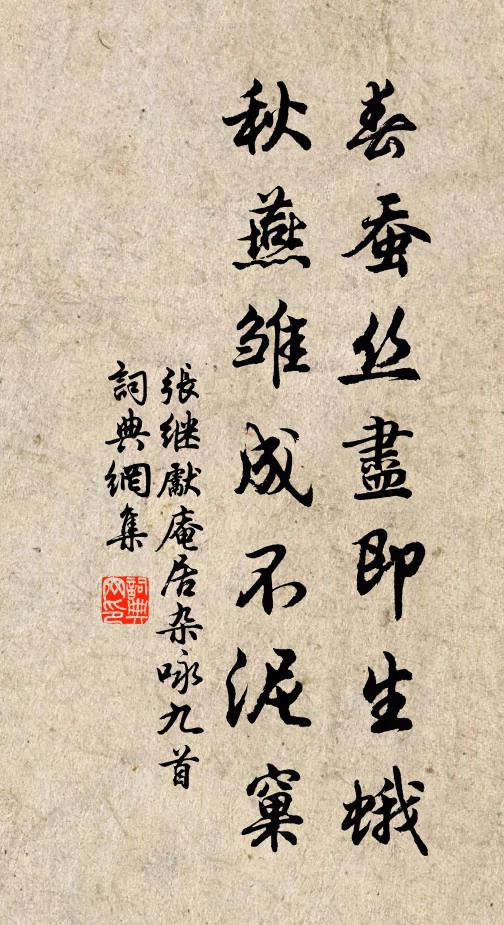 春蚕丝盡即生蛾
秋燕雏成不泥窠
張继獻庵居杂咏九首
詞典網集
詞典網印